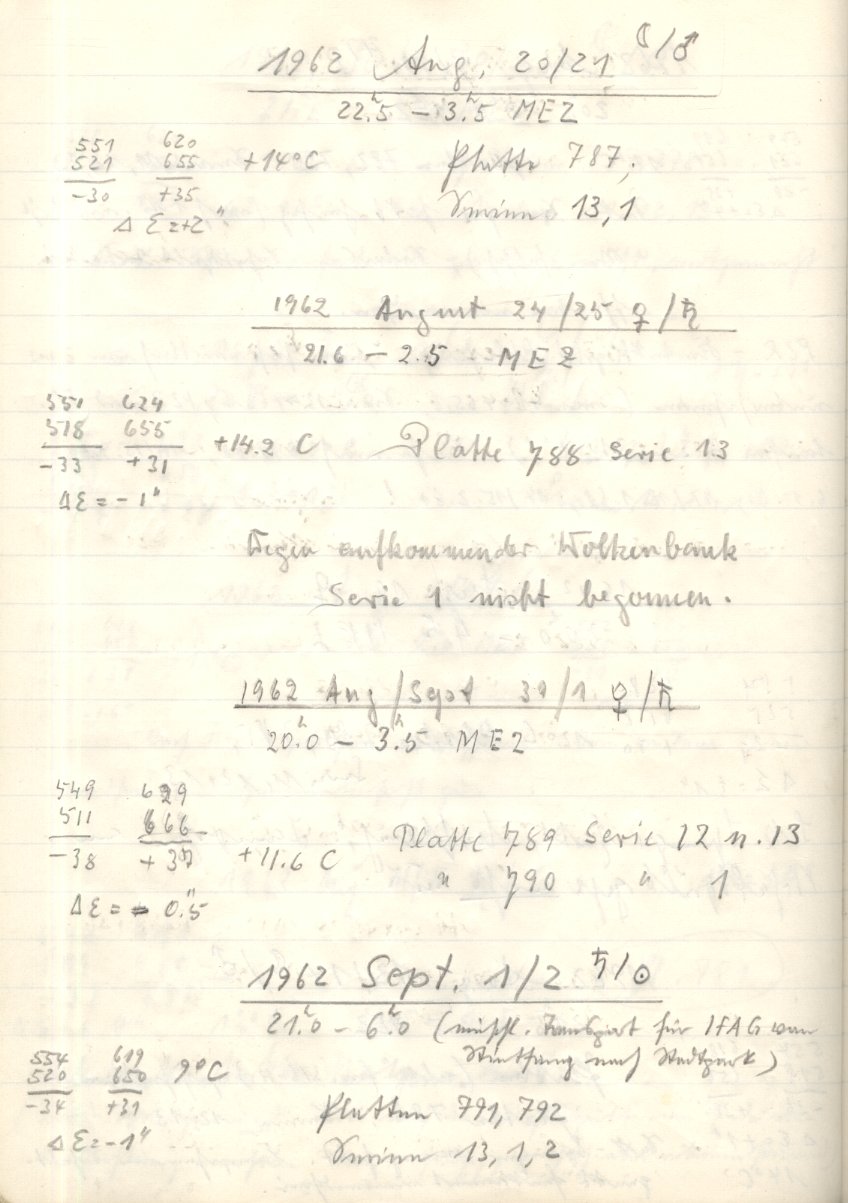 1962 Aug. 20/21 ☾/♂
22.ʰ5 – 3.ʰ5 MEZ
551 620
521 655 +14°C Platte 787;
-30 +35
Δ Σ = +2" Serien 13, 1
1962 August 24/25 ♀/♄
21.6 – 2.5 MEZ
551 624
518 655 +14.2 C Platte 788 Serie 13
-33 +31
ΔΣ = -1"
Wegen aufkommender Wolkenbank
Serie 1 nicht begonnen.
1962 Aug/Sept 31/1 ♀/♄
20.ʰ0 – 3.ʰ5 MEZ
549 629
511 666 Platte 789 Serie 12 u. 13
-38 + 37 +11.6 C " 790 " 1
ΔΣ = - 0."5
1962 Sept. 1/2 ♄/⊙
21.ʰ0 – 6.ʰ0 (einschl. Transport für IFAG von
nach Stadtpark)
554 619
520 650 9°C
-34 +31 Platten 791, 792
ΔΣ = -1" Serien 13, 1, 2